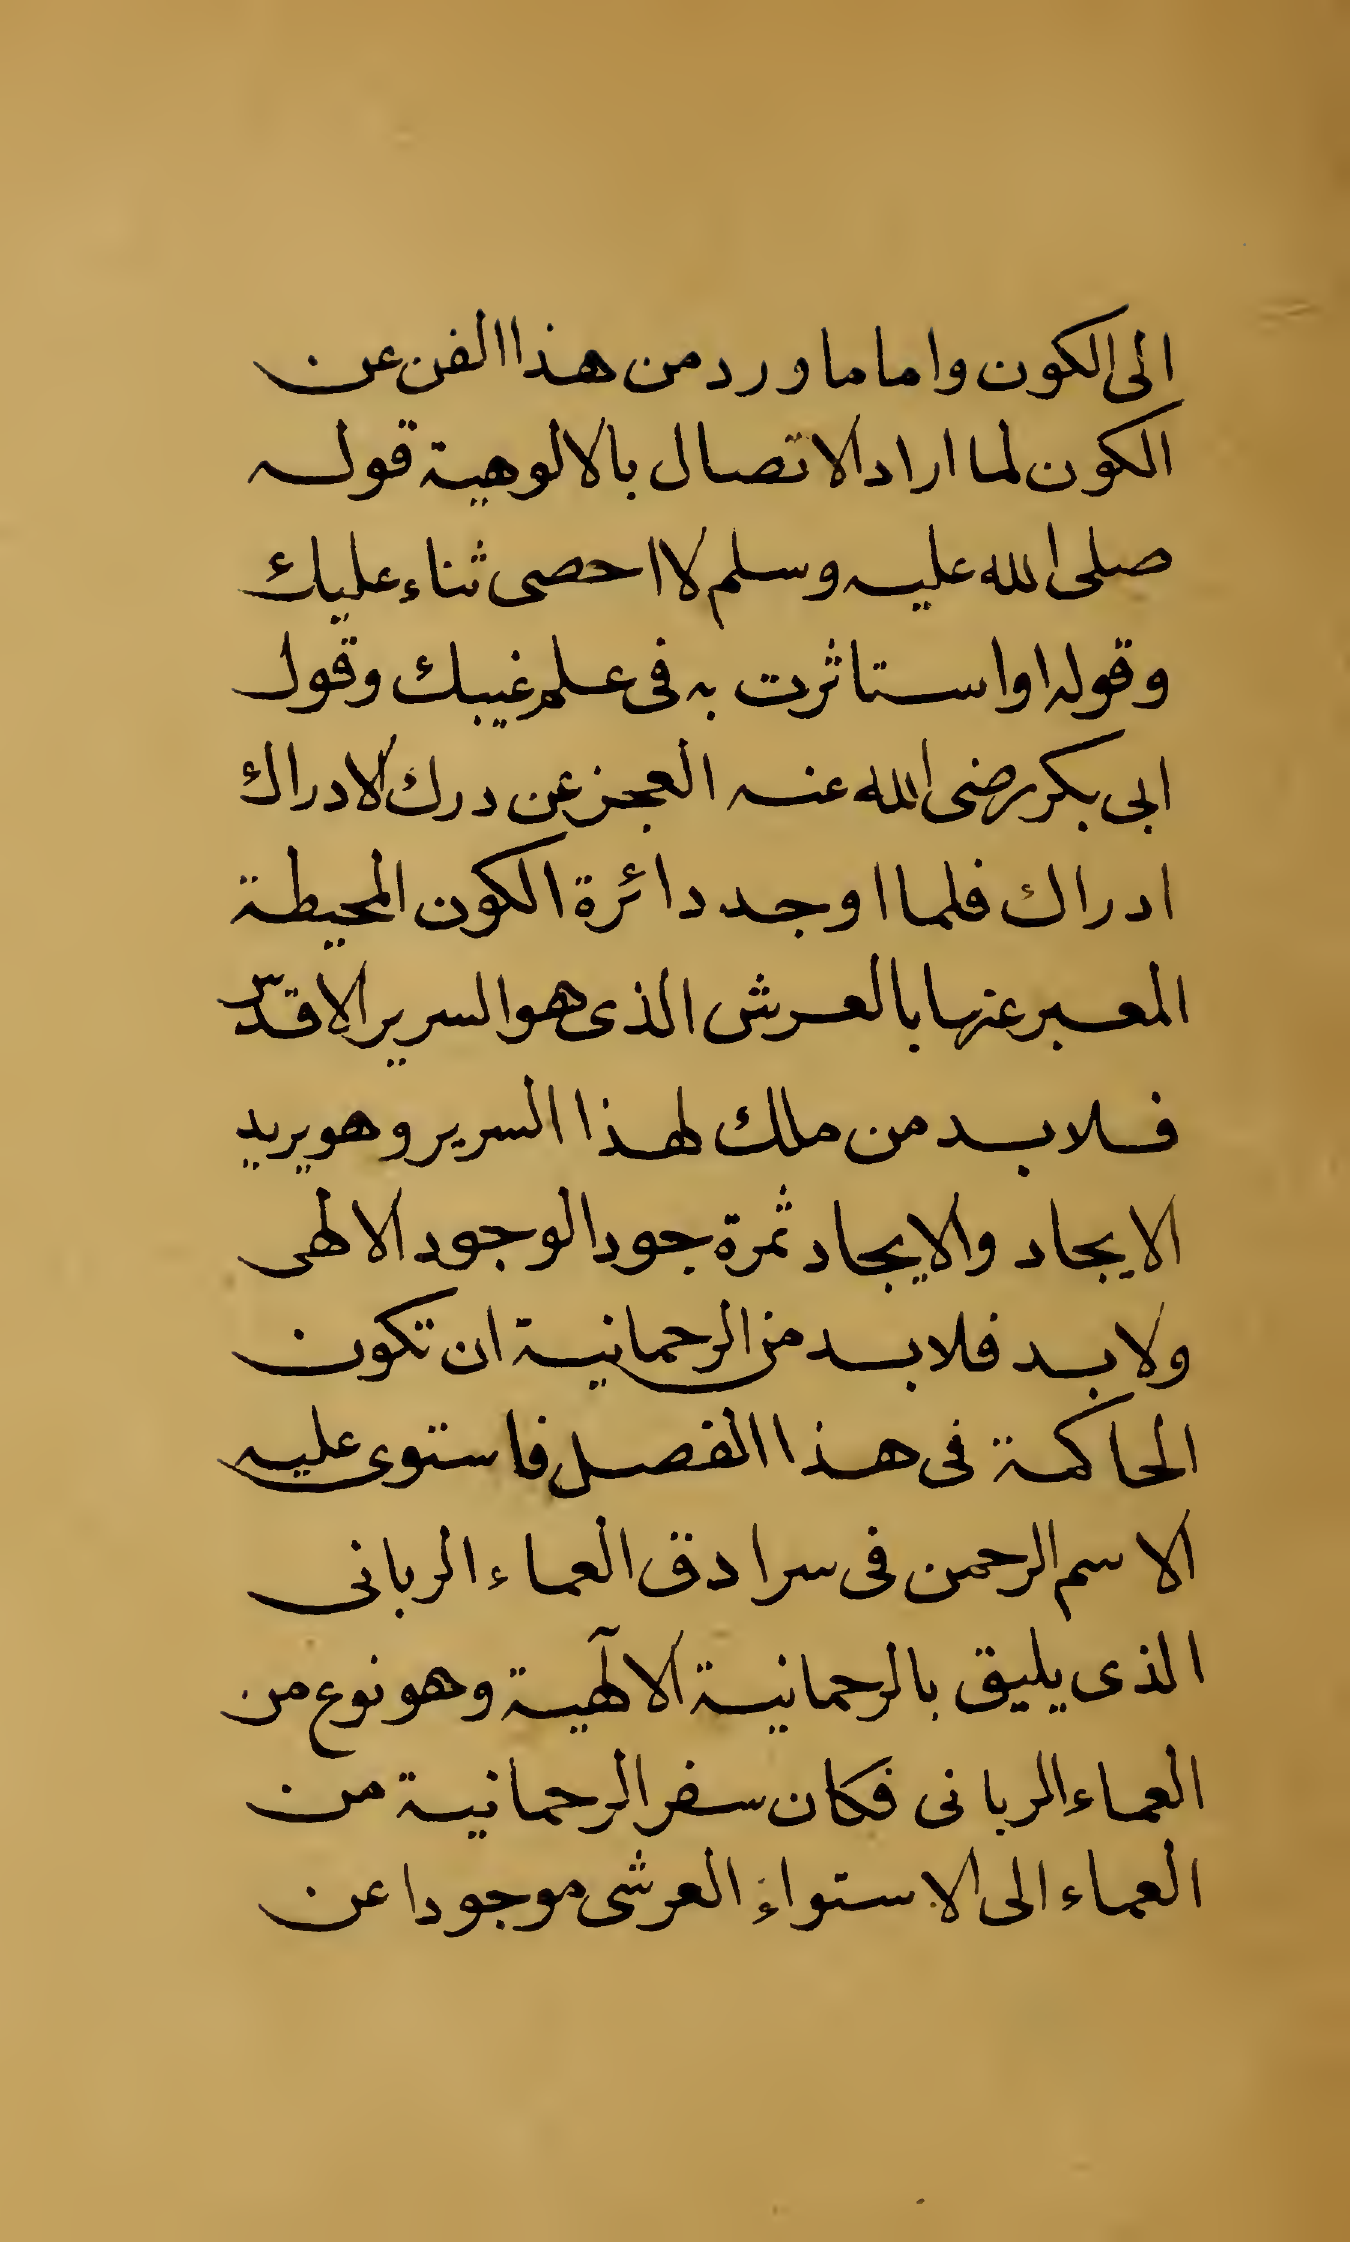 الى الكون واما ما ورد من هذا الفن عن
الكون لما اراد الاتصال بالالوهية قوله
صلى الله عليه وسلم لا احصى ثناء عليك
وقوله او استاثرت به فى علم غيبك وقول
ابى بكر رضى الله عنه العجز عن درك الادراك
ادراك فلما اوجد دائرة الكون المحيطة
المعبر عنها بالعرش الذى هو السرير الاقدس
فلا بد من ملك لهذا السرير وهو يريد
الايجاد والايجاد ثمرة جود الوجود الالهى
ولا بد فلا بد من الرحمانية ان تكون
الحاكمة فى هذا الفصل فاستوى عليه
الاسم الرحمن فى سرادق العماء الربانى
الذى يليق بالرحمانية الالٓهية وهو نوع من
العماء الربانى فكان سفر الرحمانية من
العماء الى الاستواء العرشى موجودا عن